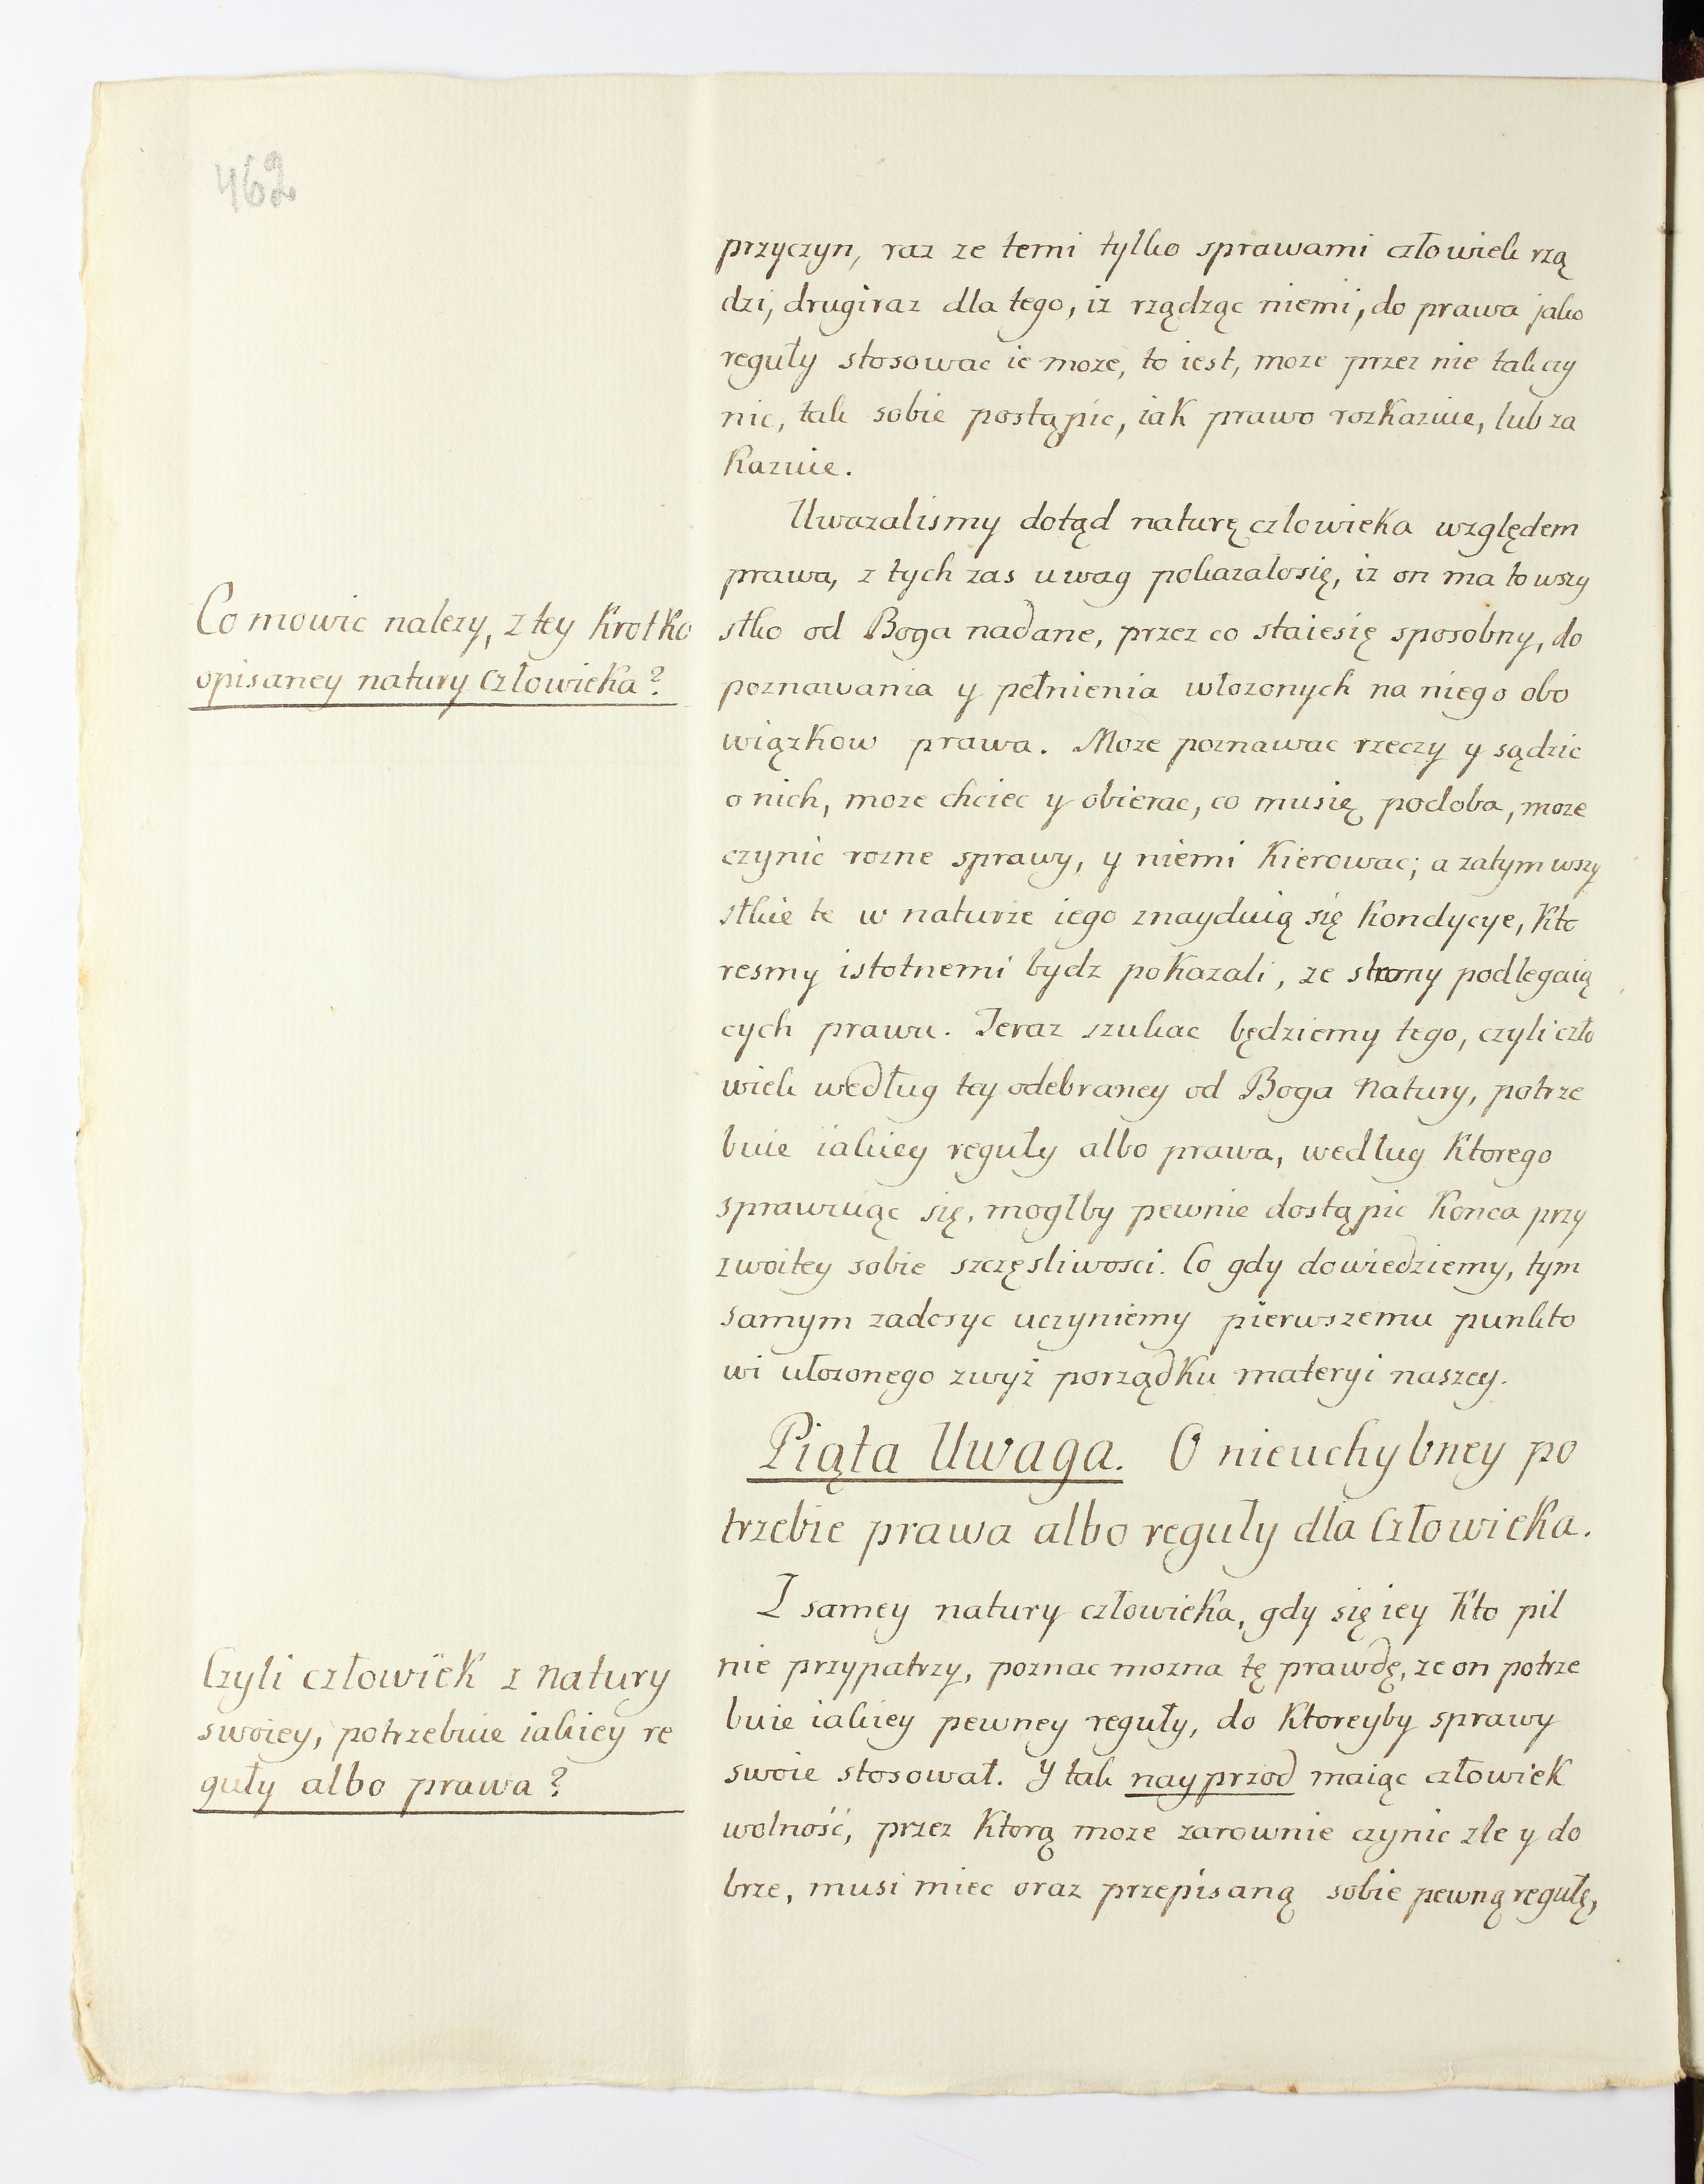 462
przyczyn, raz ze temi tylko sprawami człowiek rzą
dzi, drugiraz dla tego, iz rządząc niemi, do prawa jako
reguły stosowac ie moze, to iest, moze przez nie tak czy
nic, tak sobie postąpic, iak prawo rozkazuie, lub za
kazuie.
Uwazalismy dotąd naturę czlowieka względem
prawa, z tych zas uwag pokazalosię, iz on ma to wszy
stko od Boga nadane, przez co staiesię sposobny, do
poznawania y pełnienia włozonych na niego obo
wiązkow prawa. Moze poznawac rzeczy y sądzic
o nich, moze chciec y obierac, co musię podoba, moze
czynic rozne sprawy, y niemi kierowac; a zatym wszy
stkie te w naturze iego znayduią się kondycye, kto
resmy istotnemi bydz pokazali, ze strony podlegaią
cych prawu. Teraz szukac będziemy tego, czyli czło
wiek według tey odebraney od Boga natury, potrze
buie iakiey reguły albo prawa, według ktorego
sprawuiąc się, mogłby pewnie dostąpic konca przy
zwoitey sobie szczęsliwosci. Co gdy dowiedziemy, tym
samym zadosyc uczyniemy pierwszemu punkto
wi ułozonego zwyż porządku materyi naszey.
Piąta Uwaga. O nieuchybney po
trzebie prawa albo reguły dla Człowieka.
Z samey natury człowieka, gdy się iey kto pil
nie przypatrzy, poznac mozna tę prawdę, ze on potrze
buie iakiey pewney reguły, do ktoreyby sprawy
swoie stosował. Y tak nayprzod maiąc człowiek
wolność, przez ktorą moze zarownie czynic zle y do
brze, musi miec oraz przepisaną sobie pewną regułę,
Co mowic nalezy, z tey krotko
opisaney natury Człowieka?
Czyli człowiek z natury
swoiey, potrzebuie iakiey re
guły albo prawa?